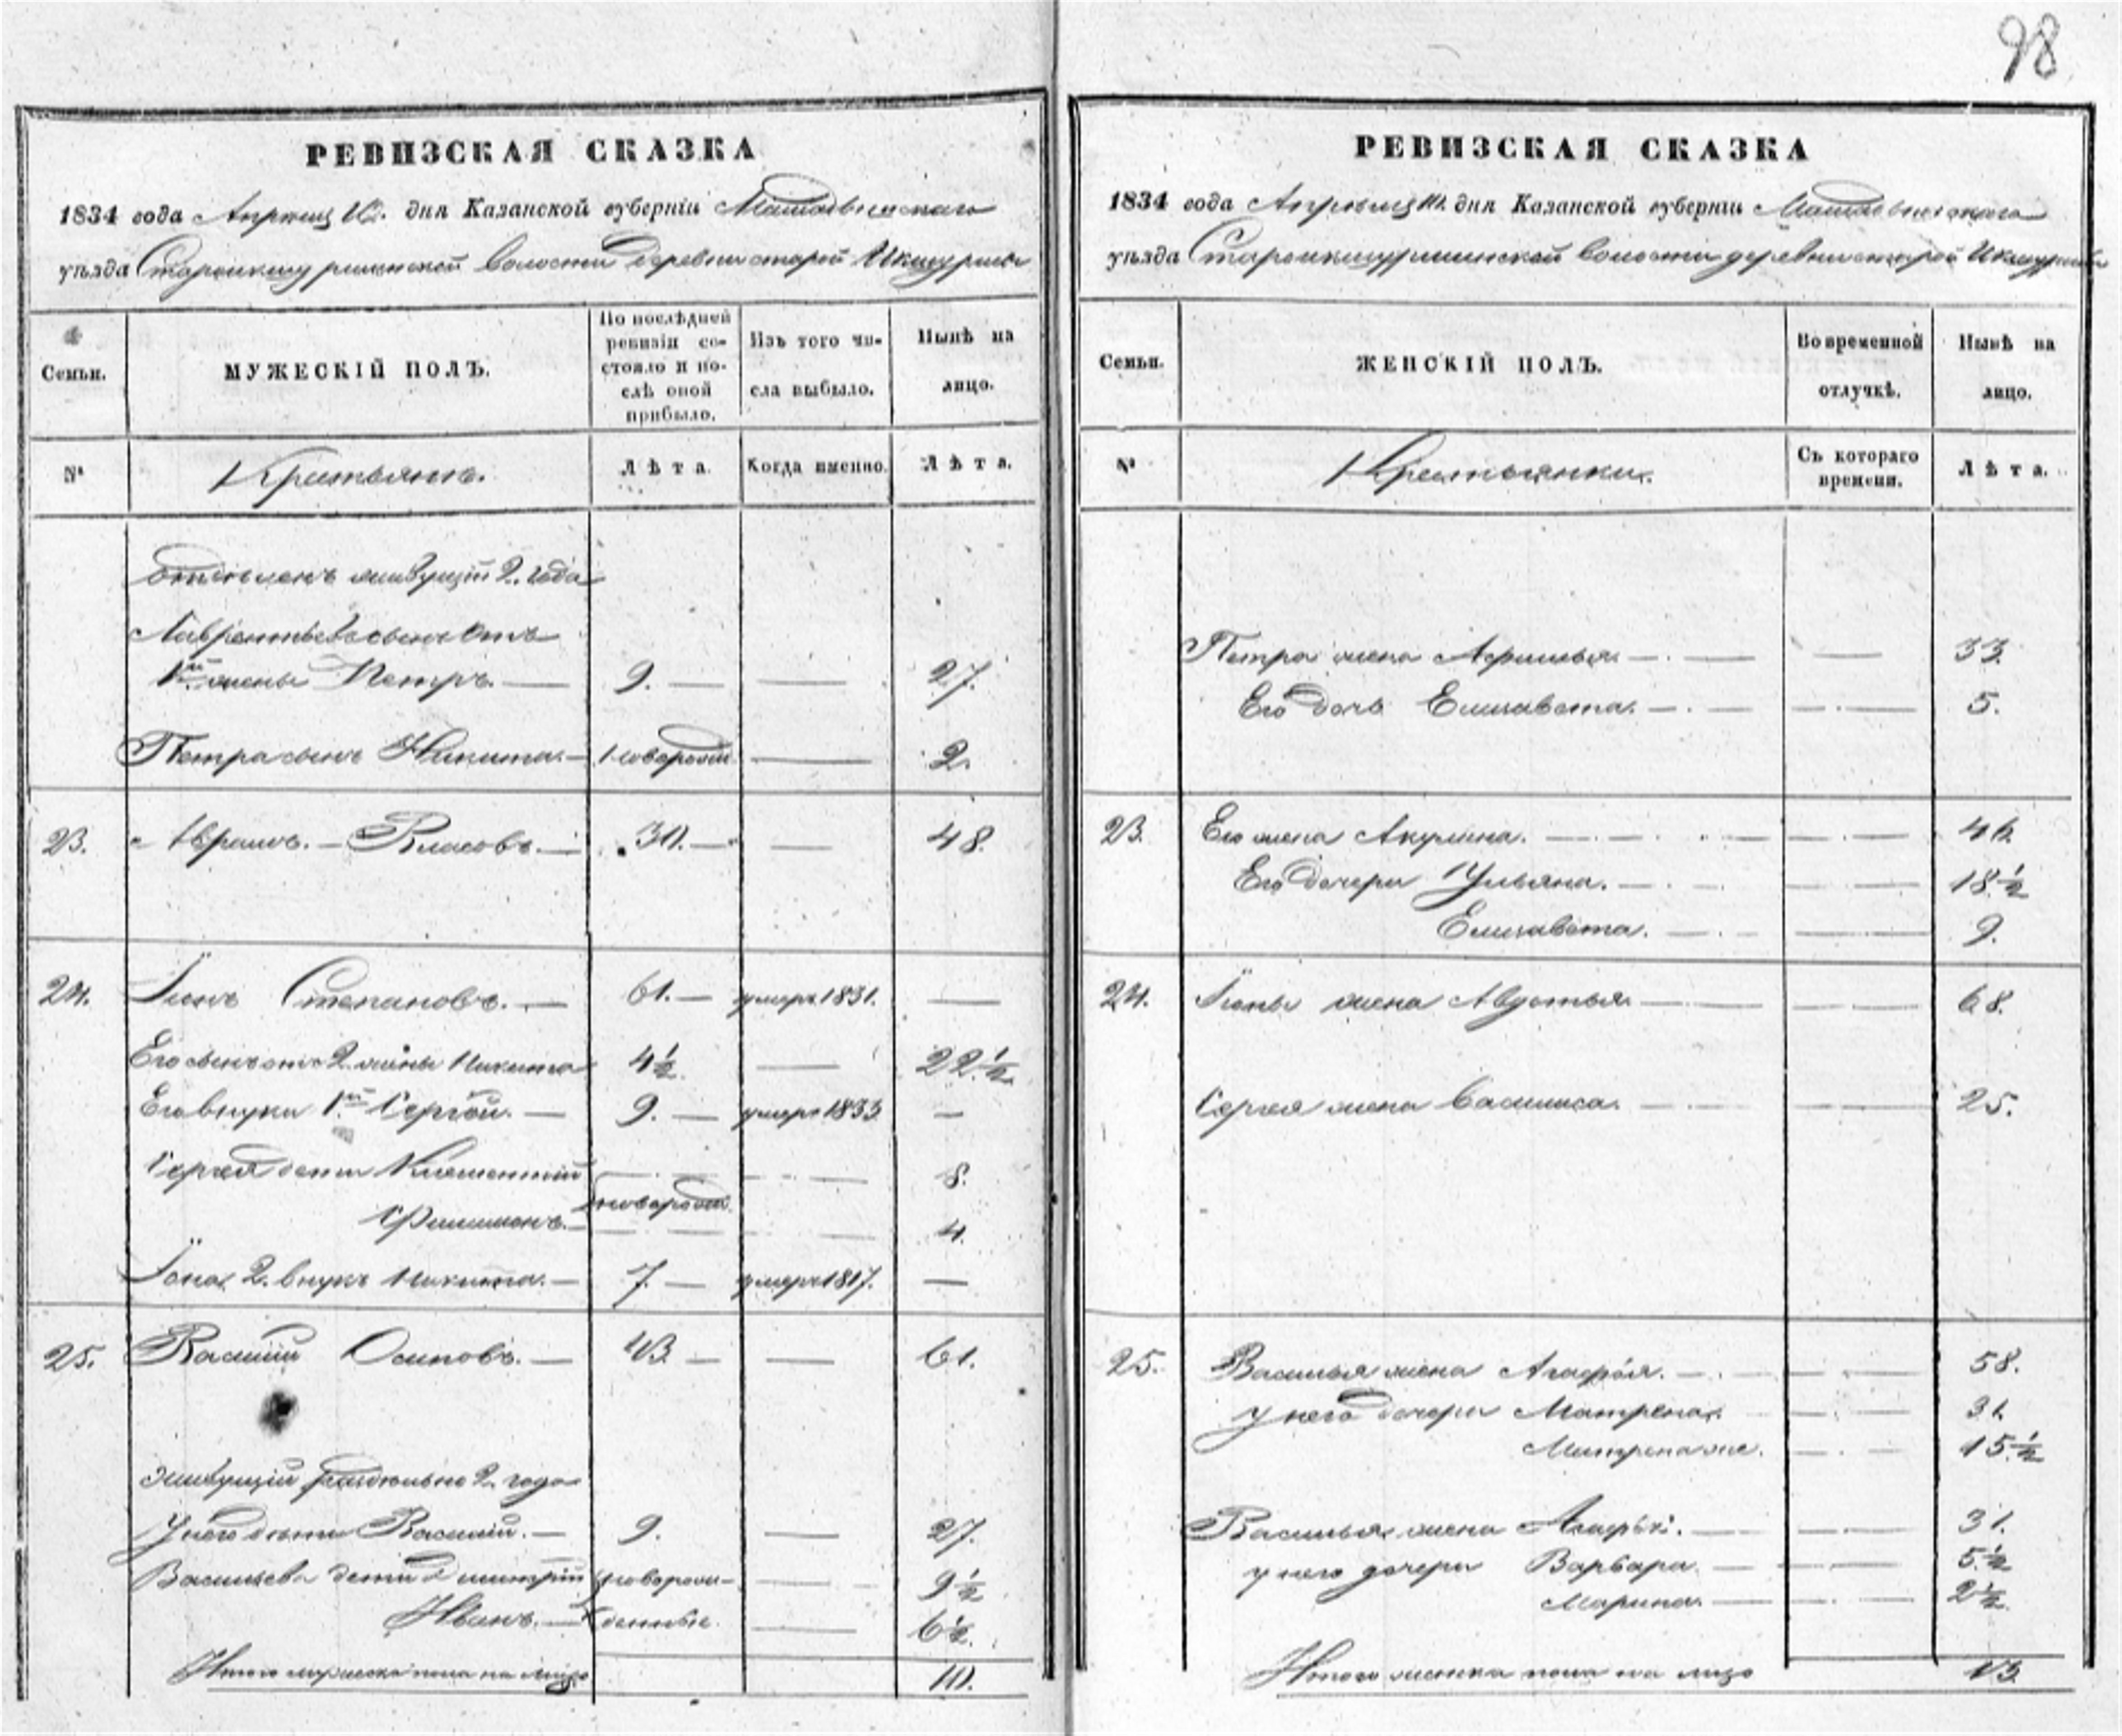 98
РЕВИЗСКАЯ СКАЗКА
1834 года Апреля 10. дня Казанской губерніи Мамадышскаго
уѣзда Староикшурминской волости деревни старой Икшурмы
Семьи.
МУЖЕСКІЙ ПОЛЪ.
По послѣдней ревизіи состояло и послѣ оной прибыло.
Изъ того числа выбыло.
Нынѣ на лицо.
№
Крестьянъ.
Лѣта.
Когда именно.
Лѣта.
живущій 2. года
Лаврентьева сынъ отъ
1й жены Петръ. — 9. — — 27.
Петра сынъ Никита. — новорожд. — 2.
23. Абрамъ. — Власовъ. — 30. — — 48.
24. Іона Степановъ. — 61. — умеръ 1831. —
Его сынъ отъ 2 жены Никита 4½. — 22½.
Его внуки 1й Сергѣй. — 9. — умеръ 1833 —
Сергея дети Клементий 8.
новорожд.
Филимонъ. — 4.
Іона 2. внукъ Никита. — 7. — умеръ 1817. —
25. Василій Осиповъ. — 43. — — 61.
живущій раздѣльно 2. года
У него дѣти Василій. — 9. — 27.
Васильева дети Дмитрій новорож- — 9½
Иванъ. — денные. — 6½.
Итого мужеска пола на лицо 10.
РЕВИЗСКАЯ СКАЗКА
1834 года Апреля 10. дня Казанской губерніи Мамадышскаго
уѣзда Староикшурминской волости деревни старой Икшурмы
Семьи.
ЖЕНСКІЙ ПОЛЪ.
Во временной отлучкѣ.
Нынѣ на лицо.
№
Крестьянки.
Съ котораго времени.
Лѣта.
Петра жена Афимья. — — — 33.
Его дочь Елизавета. — — 5.
23. Его жена Акулина. — — 46.
Его дочери Ульяна. — — 18½
Елизавета. — — 9.
24. Іоны жена Авдотья. — — 68.
Сергея жена Василиса. — — 25.
25. Василья жена Агафья. — — 58.
у него дочери Матрена. — 31.
Матрена же. — 15½
Василья жена Агафья. — — 31.
у него дочери Варвара. — — 5½
Марина. — — 2½.
Итого женска пола на лицо 13.